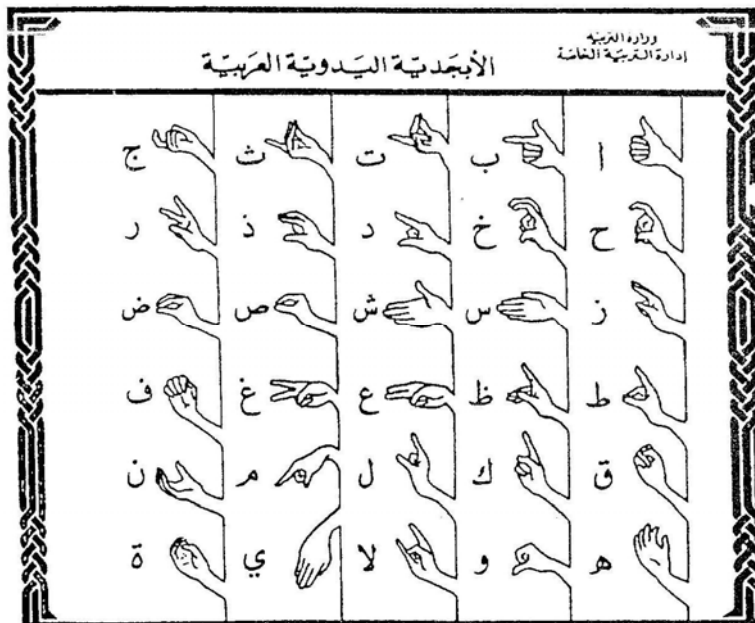 وزارة التربية
إدارة التربية الخاصة
الأبجدية اليدوية العربية
ا ب ت ث ج
ح خ د ذ ر
ز س ش ص ض
ط ظ ع غ ف
ق ك ل م ن
ه و لا ي ة